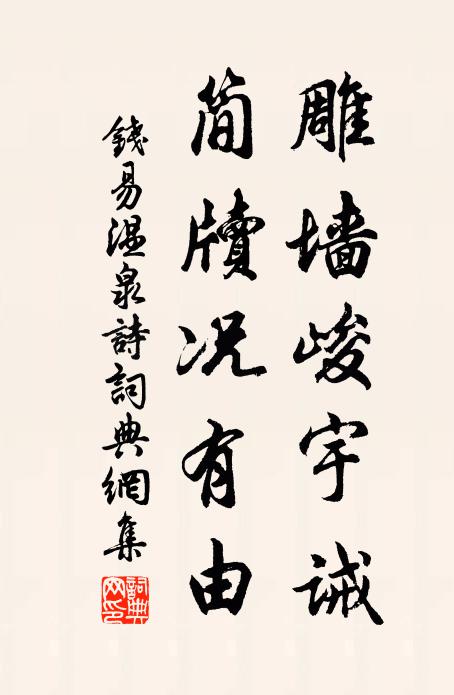 雕墙峻宇诫
简牍况有由
錢易温泉詩詞典網集
詞典网印